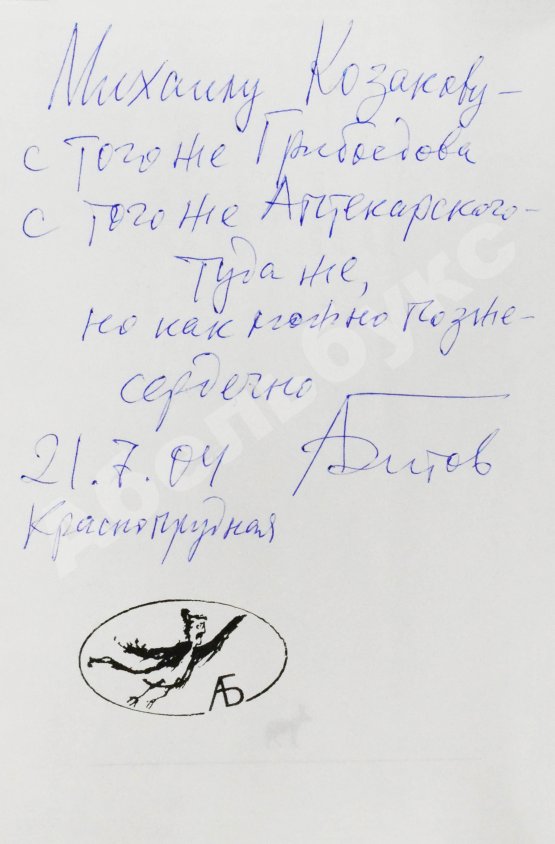 Михаилу Козакову –
с того же Грибоедова
с того же Аптекарского –
туда же,
но как можно позже –
сердечно
21.7.04 АБитов
Краснопрудная
АБ
Абельбукс